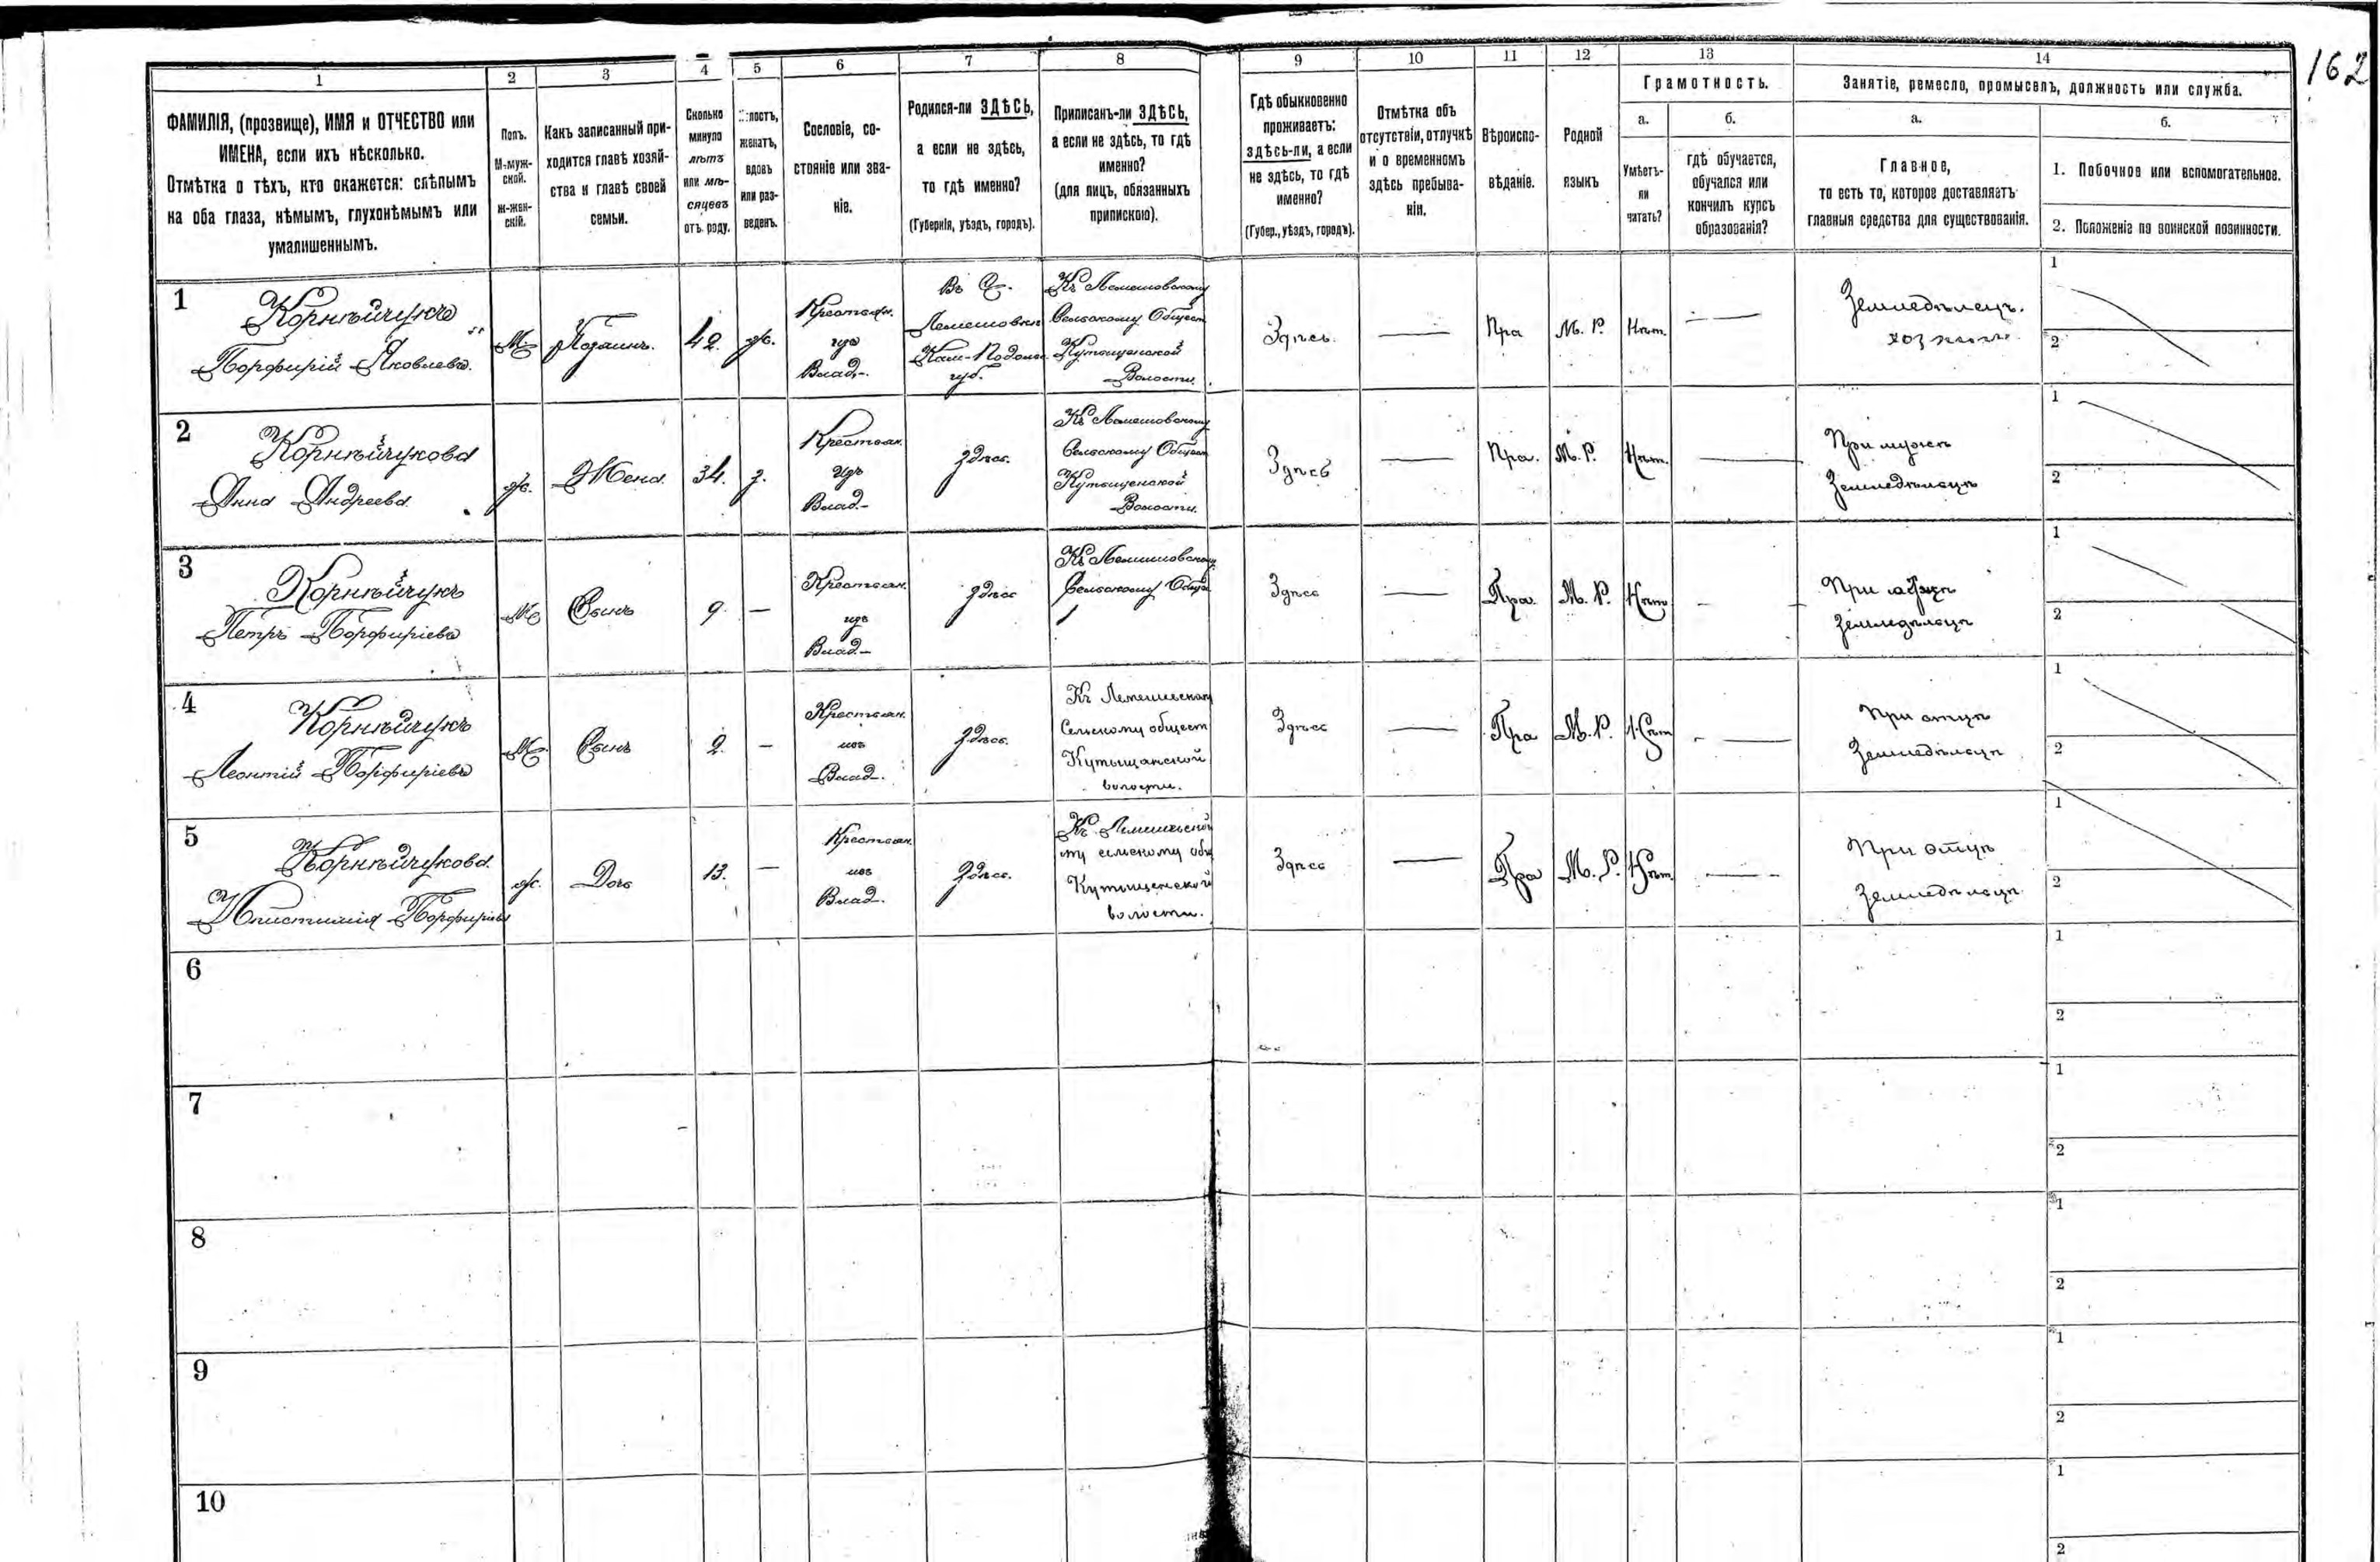 162
1
2
3
4
5
6
7
8
9
10
11
12
13
14
ФАМИЛІЯ, (прозвище), ИМЯ и ОТЧЕСТВО или
ИМЕНА, если ихъ нѣсколько.
Отмѣтка о тѣхъ, кто окажется: слѣпымъ
на оба глаза, нѣмымъ, глухонѣмымъ или
умалишеннымъ.
Полъ.
М-муж-
ской.
ж-жен-
скій.
Какъ записанный при-
ходится главѣ хозяй-
ства и главѣ своей
семьи.
Сколько
минуло
лѣтъ
или мѣ-
сяцевъ
отъ роду.
женатъ,
вдовъ
или раз-
веденъ.
Сословіе, со-
стояніе или зва-
ніе.
Родился-ли ЗДѢСЬ,
а если не здѣсь,
то гдѣ именно?
(Губернія, уѣздъ, городъ).
Приписанъ-ли ЗДѢСЬ,
а если не здѣсь, то гдѣ
именно?
(для лицъ, обязанныхъ
припискою).
Гдѣ обыкновенно
проживаетъ:
здѣсь-ли, а если
не здѣсь, то гдѣ
именно?
(Губер., уѣздъ, городъ).
Отмѣтка объ
отсутствіи, отлучкѣ
и о временномъ
здѣсь пребыва-
ніи.
Вѣроиспо-
вѣданіе.
Родной
языкъ
Грамотность.
а.
Умѣетъ-
ли
читать?
б.
гдѣ обучается,
обучался или
кончилъ курсъ
образованія?
Занятіе, ремесло, промыселъ, должность или служба.
а.
Главное,
то есть то, которое доставляетъ
главныя средства для существованія.
б.
1. Побочное или вспомогательное.
2. Положеніе по воинской повинности.
1
Корнѣйчукъ
Порфирій Яковлевъ.
М
Хозяинъ.
42.
ж.
Крестьян.
Влад.
Въ С.
Лемешовкѣ
Кам-Подол.
губ.
Къ Лемешовскому
Сельскому Общест
Кутыщенской
Волости.
Здѣсь.
—
Пра
М. Р.
Нѣт.
—
Земледѣлецъ.
хозяинъ
1
2
2
Корнѣйчукова
Анна Андреева.
ж.
Жена.
34.
з.
Крестьян.
Влад.
Здѣсь.
Къ Лемешовскому
Сельскому Общест
Кутыщенской
Волости.
Здѣсь
—
Пра.
М. Р.
Нѣт.
—
При мужѣ
Земледѣльцѣ
1
2
3
Корнѣйчукъ
Петръ Порфиріевъ
М
Сынъ
9.
—
Крестьян.
Влад.
Здѣсь
Къ Лемешовскому
Сельскому Общес
Здѣсь
—
Пра.
М. Р.
Нѣт
—
При
земледѣльцѣ
1
2
4
Корнѣйчукъ
Леонтій Порфиріевъ
М.
Сынъ
2.
—
Крестьян.
Влад.
Здѣсь.
Къ
Сельскому общест
Кутыщанской
волости.
Здѣсь
—
Пра
М. Р.
Нѣт
—
При отцѣ
Земледѣльцѣ
1
2
5
Корнѣйчукова.
Порфиріев
ж.
Дочь
13.
—
Крестьян.
Влад.
Здѣсь.
Къ
му сельскому общ
Кутыщенской
волости.
Здѣсь
—
Пра
М. Р.
Нѣт.
—
При отцѣ
Земледѣльцѣ.
1
2
6
1
2
7
1
2
8
1
2
9
1
2
10
1
2